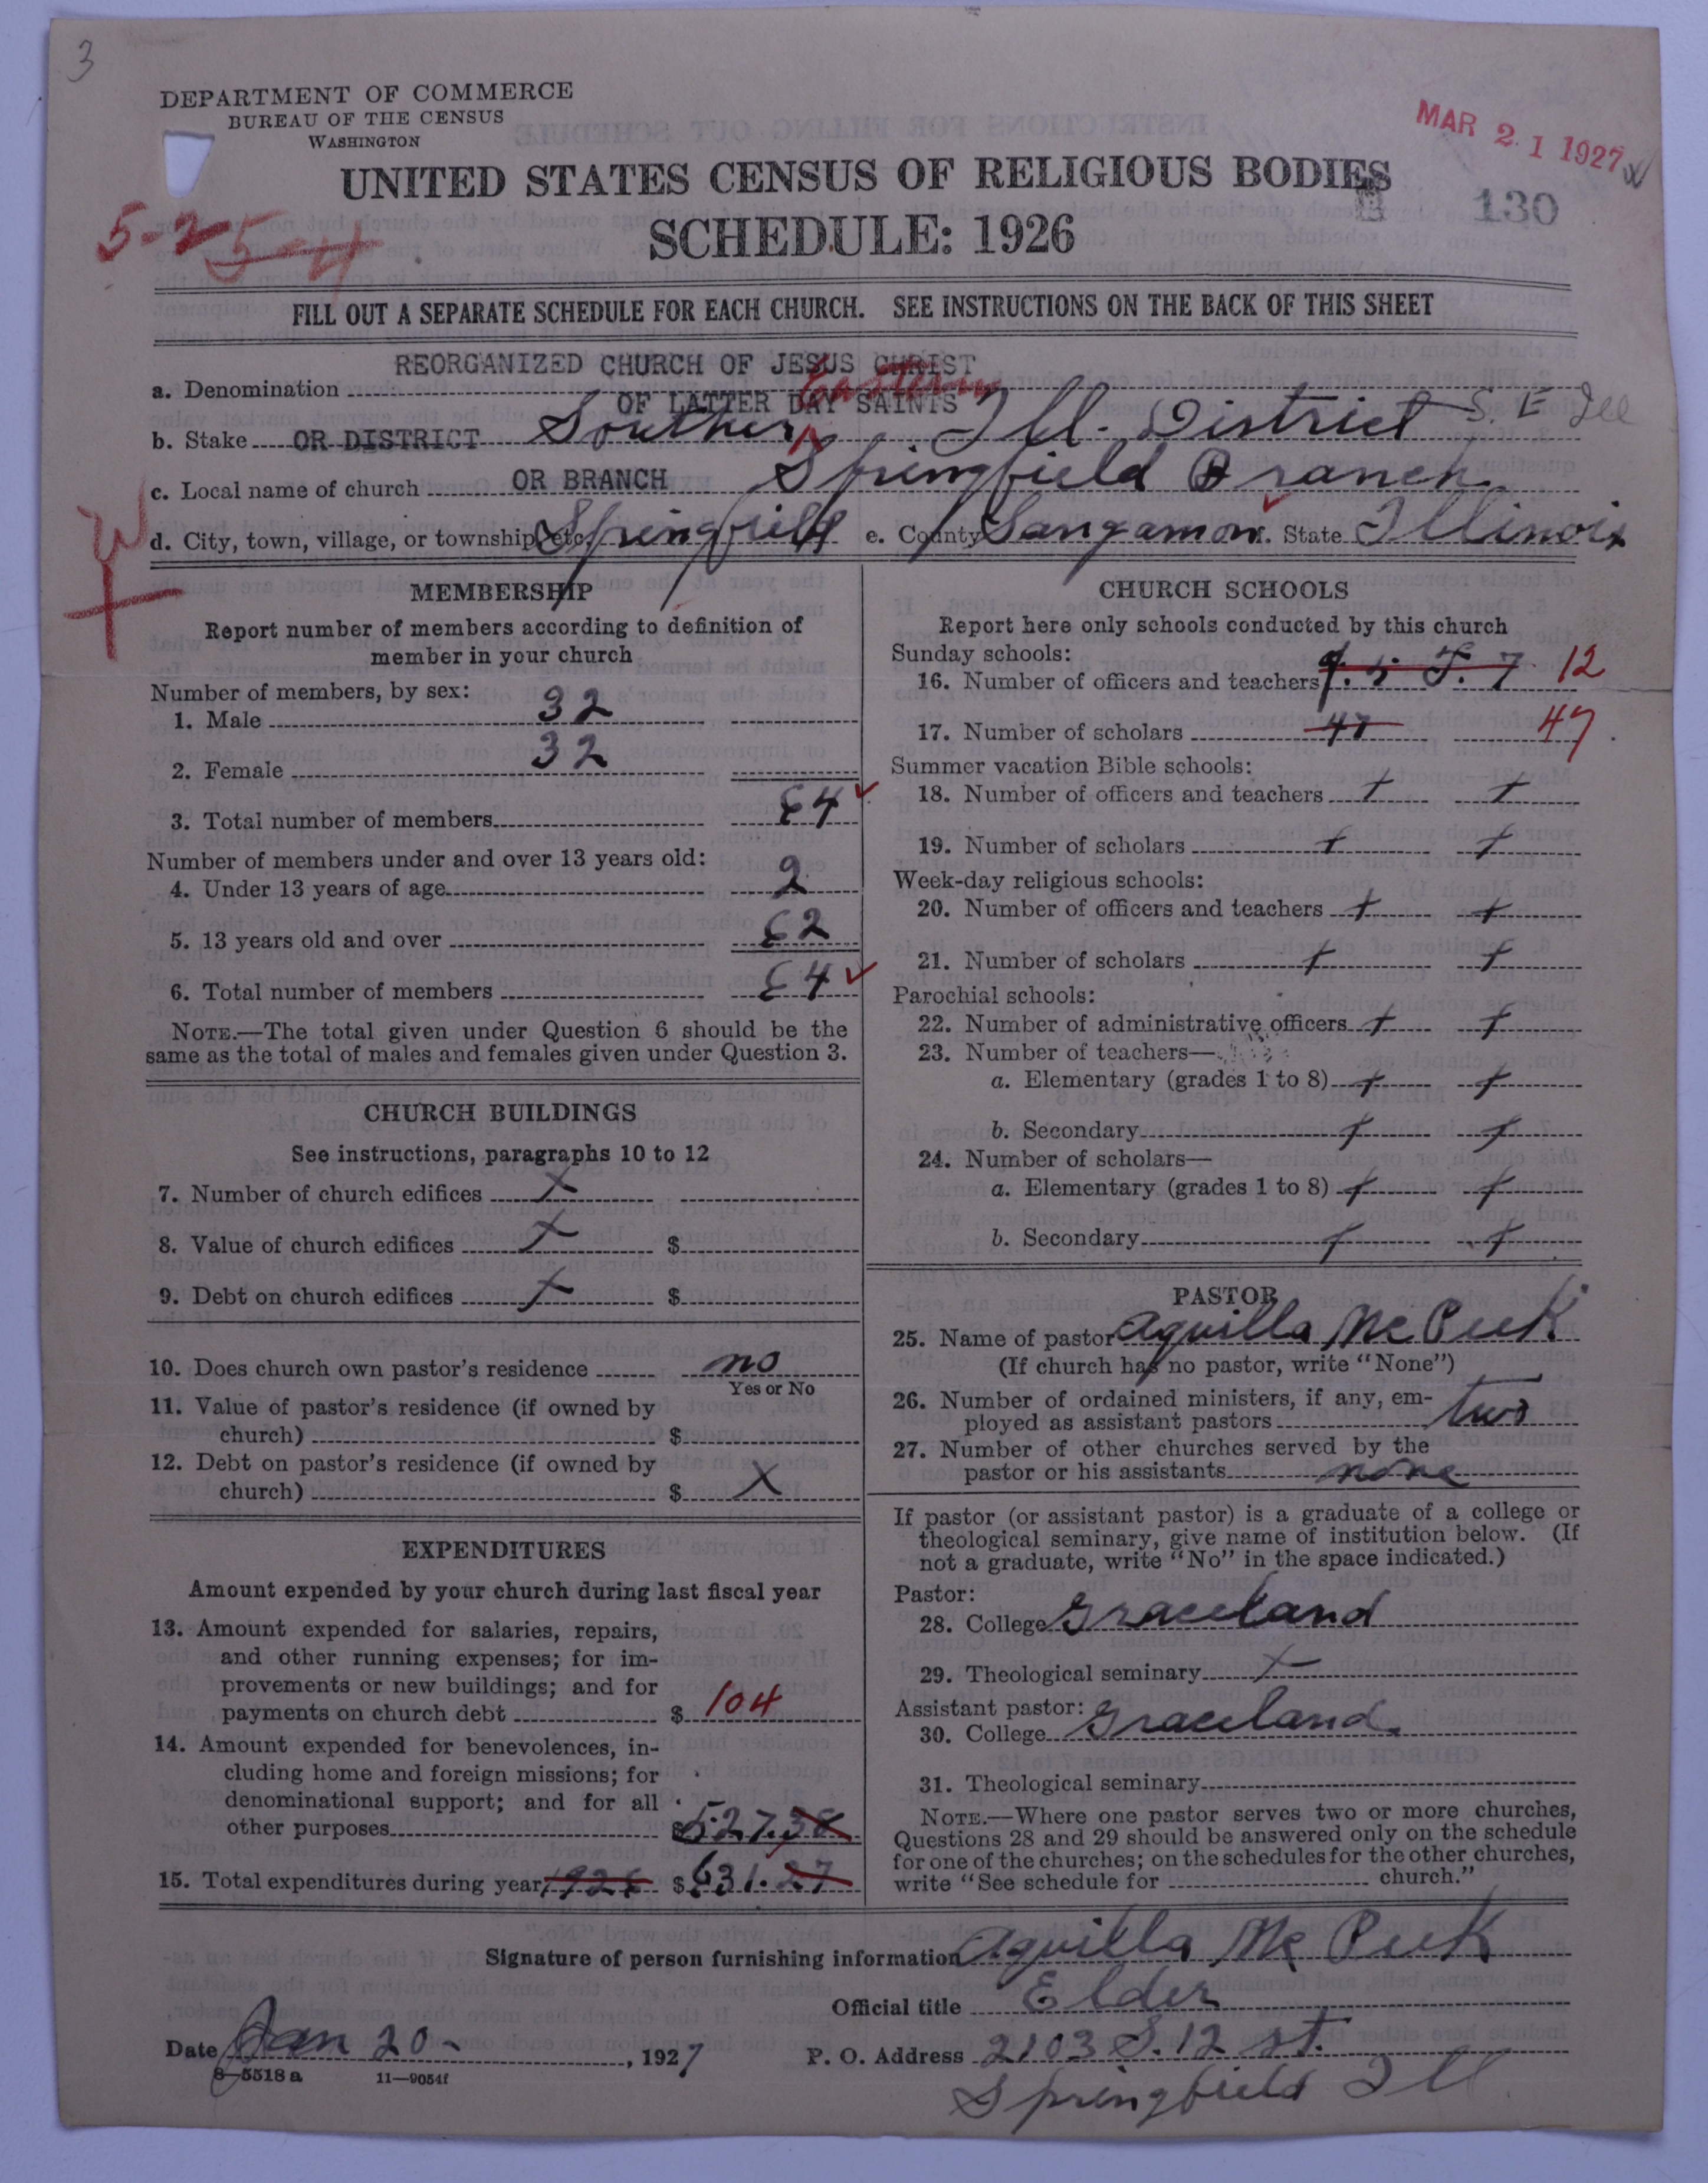 3
DEPARTMENT OF COMMERCE
BUREAU OF THE CENSUS
WASHINGTON
MAR 21 1927
UNITED STATES CENSUS OF RELIGIOUS BODIES
130
SCHEDULE: 1926
5-2 5-4
FILL OUT A SEPARATE SCHEDULE FOR EACH CHURCH. SEE INSTRUCTIONS ON THE BACK OF THIS SHEET
REORGANIZED CHURCH OF JESUS CHRIST
a. Denomination
OF LATTER DAY SAINTS
Eastern
b. Stake OR DISTRICT Southern Ill. District S. E Ill
c. Local name of church OR BRANCH Springfield Branch
d. City, town, village, or township, etc. Springfield e. County Sangamon f. State Illinois
W
MEMBERSHIP
Report number of members according to definition of
member in your church
Number of members, by sex:
1. Male 32
2. Female 32
3. Total number of members 64
Number of members under and over 13 years old:
4. Under 13 years of age 2
5. 13 years old and over 62
6. Total number of members 64
NOTE.—The total given under Question 6 should be the
same as the total of males and females given under Question 3.
CHURCH BUILDINGS
See instructions, paragraphs 10 to 12
7. Number of church edifices X
8. Value of church edifices X $
9. Debt on church edifices X $
10. Does church own pastor's residence no
Yes or No
11. Value of pastor's residence (if owned by
church) $
12. Debt on pastor's residence (if owned by
church) $ X
EXPENDITURES
Amount expended by your church during last fiscal year
13. Amount expended for salaries, repairs,
and other running expenses; for im-
provements or new buildings; and for
payments on church debt $ 104
14. Amount expended for benevolences, in-
cluding home and foreign missions; for
denominational support; and for all
other purposes $ 527.38
15. Total expenditures during year 1926 $ 631.27
CHURCH SCHOOLS
Report here only schools conducted by this church
Sunday schools:
16. Number of officers and teachers 5 F. 7 12
17. Number of scholars 47 47
Summer vacation Bible schools:
18. Number of officers and teachers + +
19. Number of scholars + +
Week-day religious schools:
20. Number of officers and teachers + +
21. Number of scholars + +
Parochial schools:
22. Number of administrative officers + +
23. Number of teachers—
a. Elementary (grades 1 to 8) + +
b. Secondary + +
24. Number of scholars—
a. Elementary (grades 1 to 8) + +
b. Secondary + +
PASTOR
25. Name of pastor Aquilla McPeek
(If church has no pastor, write "None")
26. Number of ordained ministers, if any, em-
ployed as assistant pastors two
27. Number of other churches served by the
pastor or his assistants none
If pastor (or assistant pastor) is a graduate of a college or
theological seminary, give name of institution below. (If
not a graduate, write "No" in the space indicated.)
Pastor:
28. College Graceland
29. Theological seminary X
Assistant pastor:
30. College Graceland.
31. Theological seminary
NOTE.—Where one pastor serves two or more churches,
Questions 28 and 29 should be answered only on the schedule
for one of the churches; on the schedules for the other churches,
write "See schedule for church."
Signature of person furnishing information Aquilla McPeek
Official title Elder
Date Jan 20-, 1927 P. O. Address 2103 S. 12 st.
8-5518 a 11—9054f
Springfield Ill